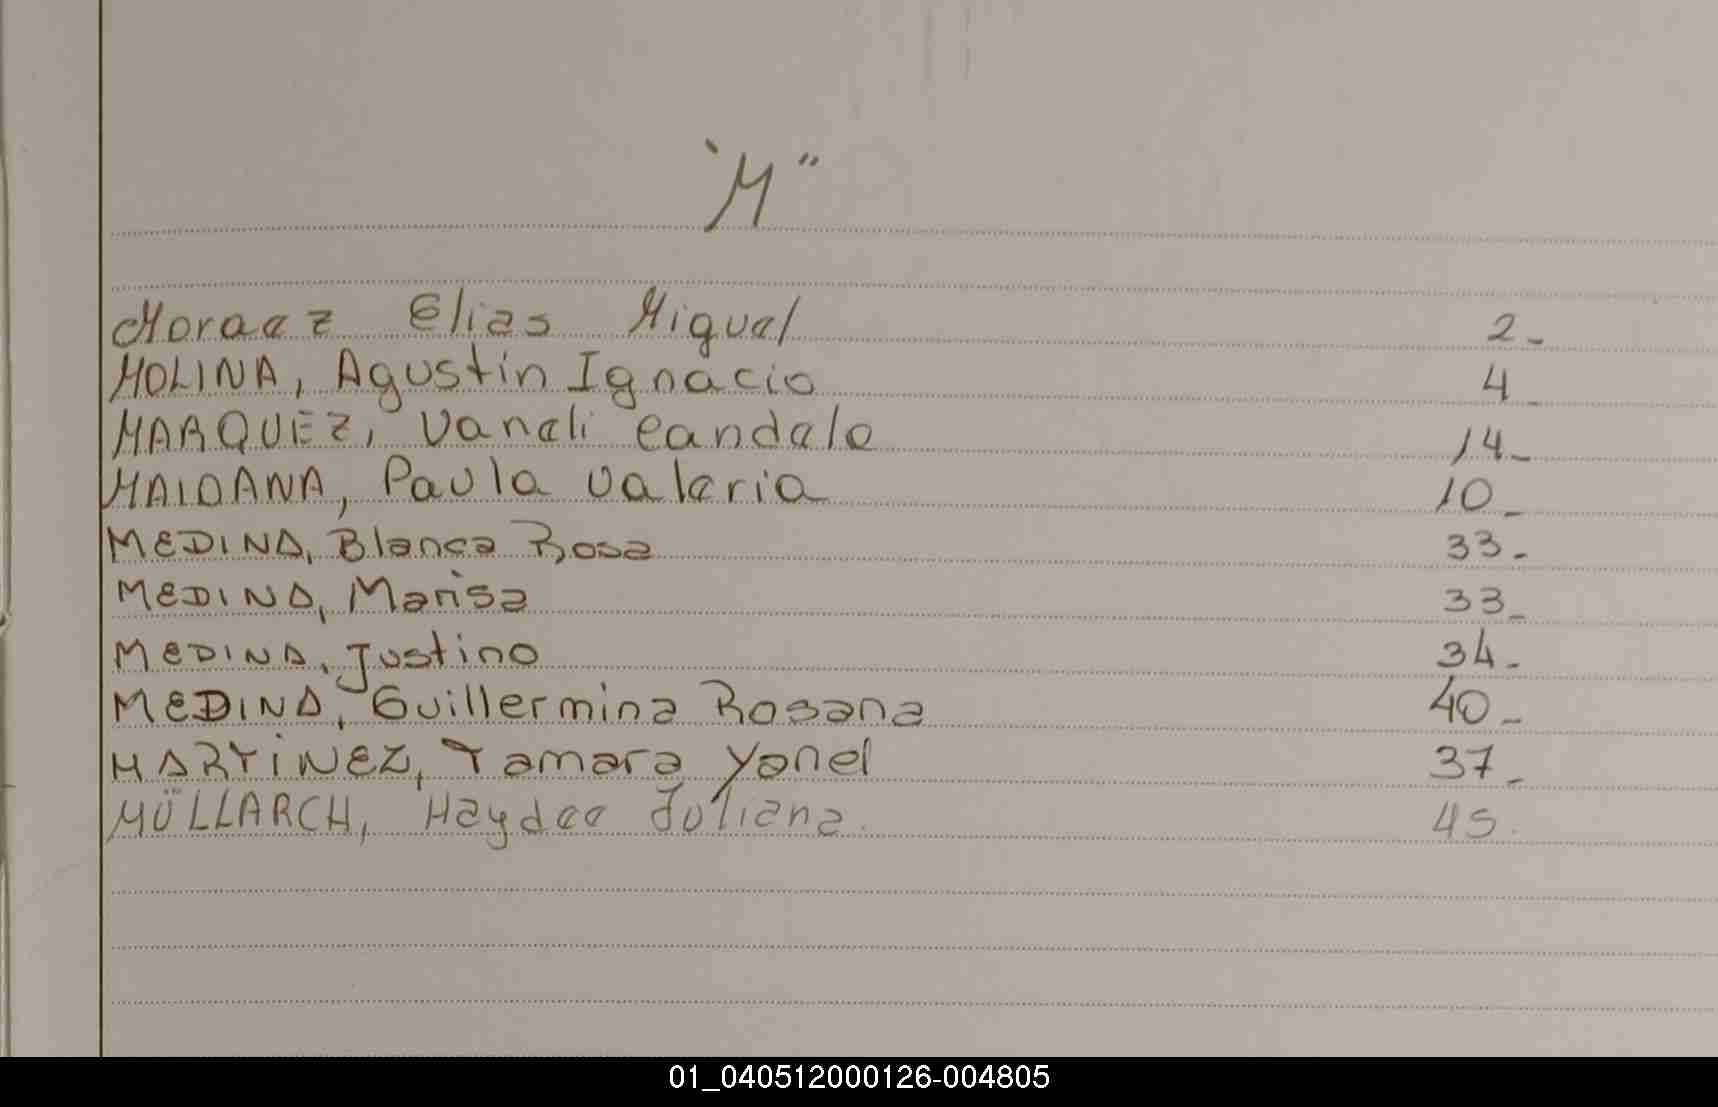 "M"
Moraez Elias Miguel 2-
MOLINA, Agustin Ignacio 4-
MARQUEZ, Vaneli Candela 14-
MAIDANA, Paula Valeria 10-
MEDINA, Blanca Rosa 33-
MEDINA, Marisa 33-
MEDINA, Justino 34-
MEDINA, Guillermina Rosana 40-
MARTiNEZ, Tamara Yanel 37-
MÜLLARCH, Haydee Juliana. 45.
01_040512000126-004805